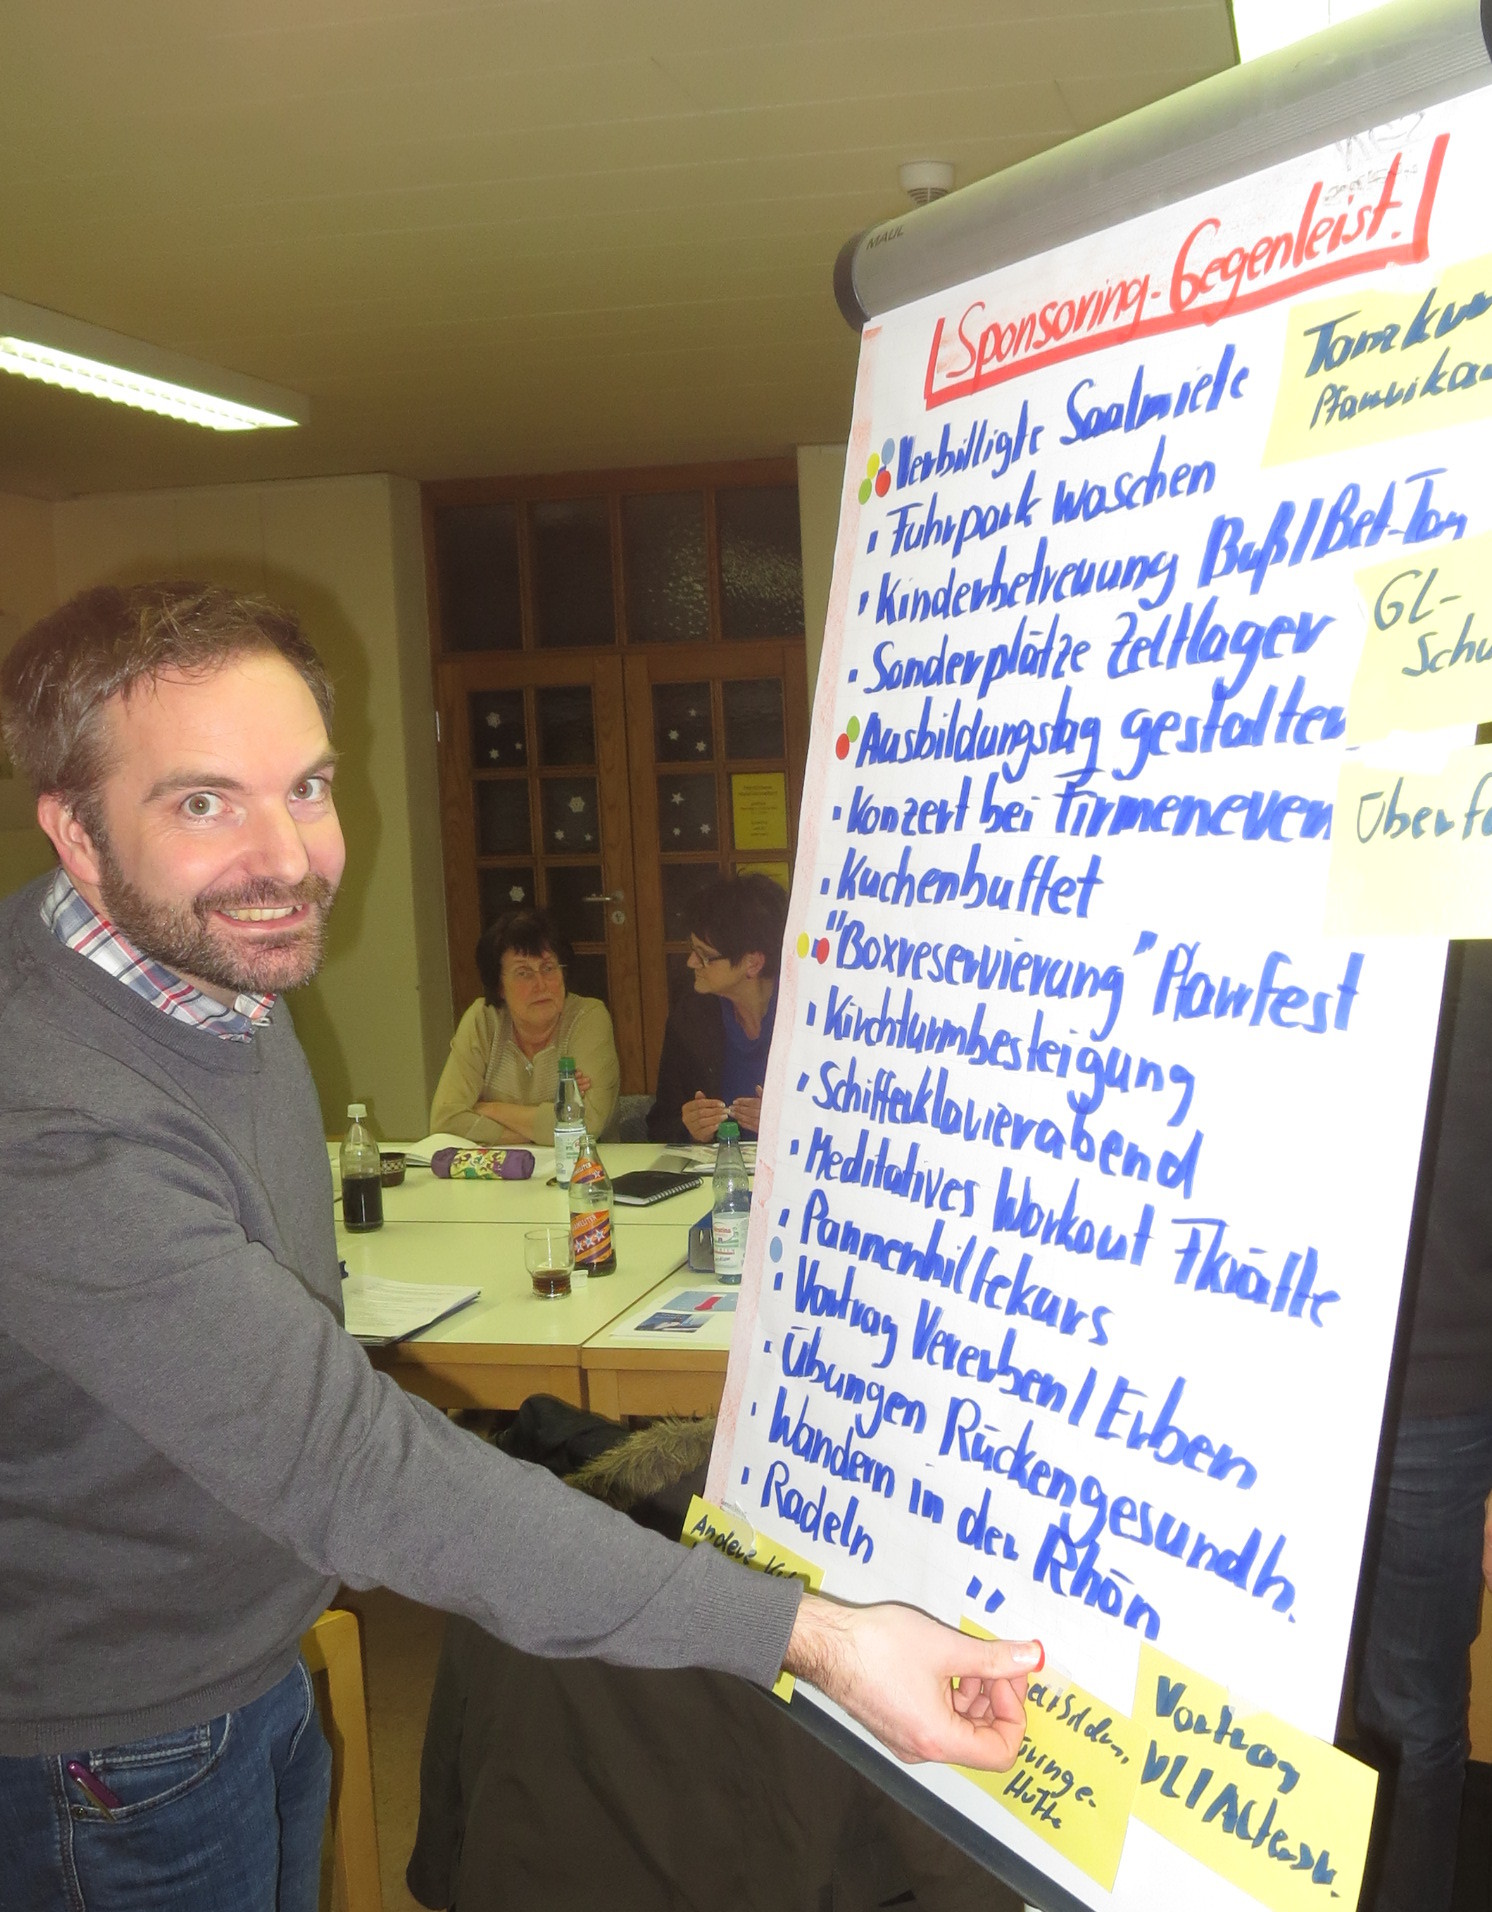 MAUL
Sponsoring-Gegenleist.
Verbilligte Saalmiete
Fuhrpark waschen
Kinderbetreuung Buß/Bet-Tag
Sonderplätze Zeltlager
Ausbildungstag gestalten
Konzert bei Firmeneven
Kuchenbuffet
"Boxreservierung" Pfarrfest
Kirchturmbesteigung
Schifferklavierabend
Meditatives Workout Fkräfte
Pannenhilfekurs
Vortrag Vererben/Erben
Übungen Rückengesundh.
Wandern in der Rhön
Radeln " 
GL-
Schu
Andere
Hütte
Vortrag